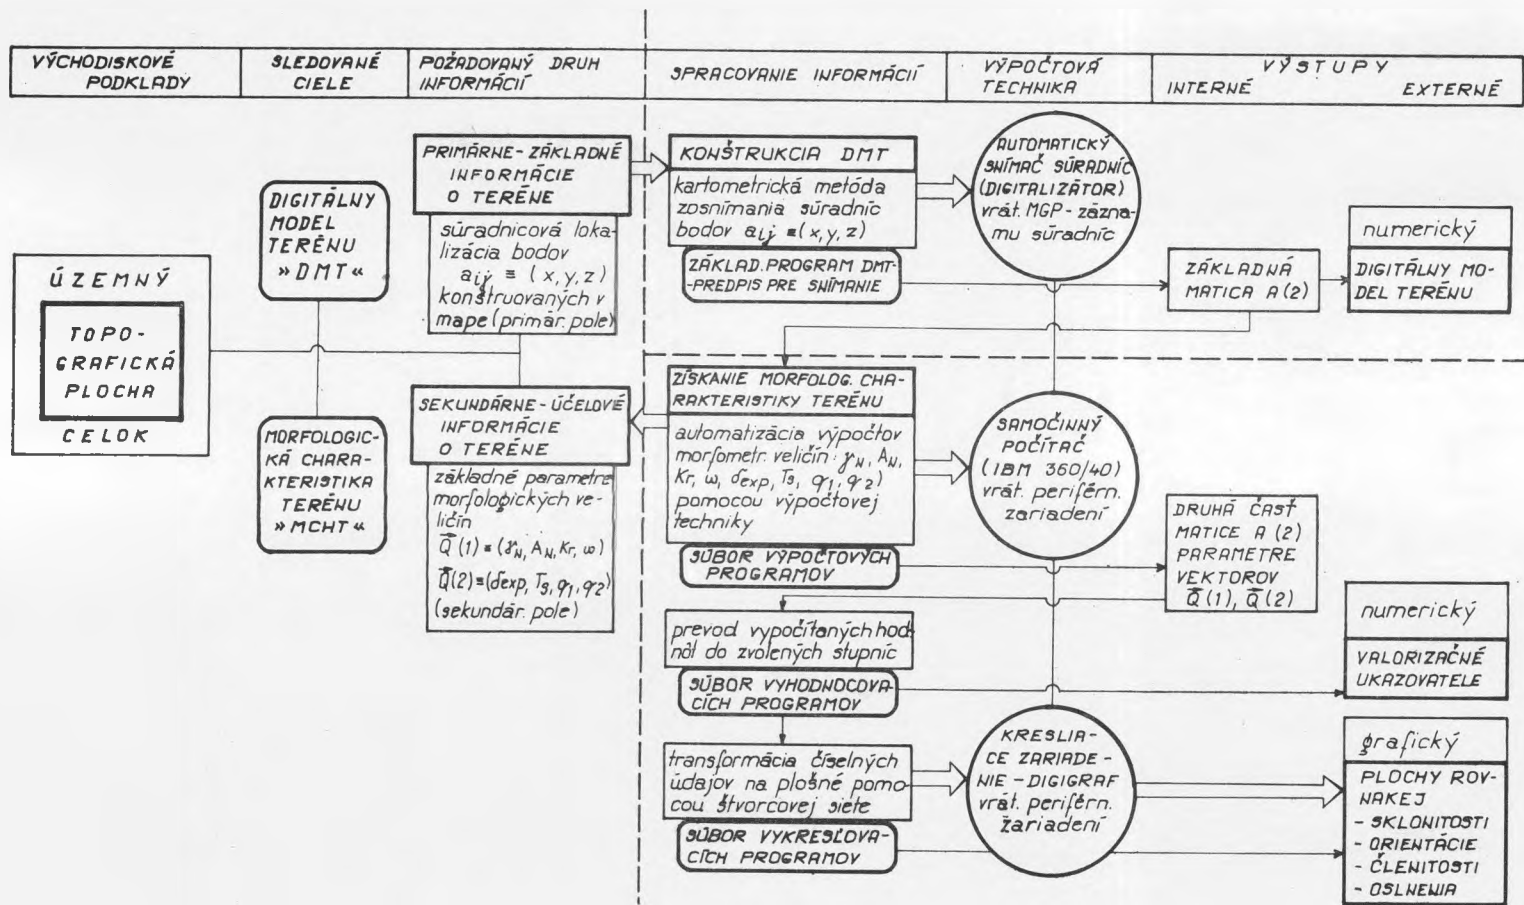 VÝCHODISKOVÉ
PODKLADY
SLEDOVANÉ
CIELE
POŽADOVANÝ DRUH
INFORMÁCIÍ
SPRACOVANIE INFORMÁCIÍ
VÝPOČTOVÁ
TECHNIKA
VÝSTUPY
INTERNÉ
EXTERNÉ
ÚZEMNÝ
TOPO-
GRAFICKÁ
PLOCHA
CELOK
DIGITÁLNY
MODEL
TERÉNU
»DMT«
MORFOLOGIC-
KÁ CHARA-
KTERISTIKA
TERÉNU
»MCHT«
PRIMÁRNE-ZÁKLADNÉ
INFORMÁCIE
O TERÉNE
súradnicová loka-
lizácia bodov
aij ≡ (x, y, z)
konštruovaných v
mape (primár. pole)
SEKUNDÁRNE-ÚČELOVÉ
INFORMÁCIE
O TERÉNE
základné parametre
morfologických ve-
ličín
Q̄(1)≡(γN, AN, Kr, ω)
Q̄(2)≡(δexp, Ts, φ1, φ2)
(sekundár. pole)
KONŠTRUKCIA DMT
kartometrická metóda
zosnímania súradníc
bodov aij ≡ (x, y, z)
ZÁKLAD. PROGRAM DMT-
-PREDPIS PRE SNÍMANIE
ZÍSKANIE MORFOLOG. CHA-
RAKTERISTIKY TERÉNU
automatizácia výpočtov
morfometr. veličín: γN, AN,
Kr, ω, δexp, Ts, φ1, φ2)
pomocou výpočtovej
techniky
SÚBOR VÝPOČTOVÝCH
PROGRAMOV
prevod vypočítaných hod-
nôt do zvolených stupníc
SÚBOR VYHODNOCOVA-
CÍCH PROGRAMOV
transformácia číselných
údajov na plošné pomo-
cou štvorcovej siete
SÚBOR VYKRESĽOVA-
CÍCH PROGRAMOV
AUTOMATICKÝ
SNÍMAČ SÚRADNÍC
(DIGITALIZÁTOR)
vrát. MGP-zázna-
mu súradníc
SAMOČINNÝ
POČÍTAČ
(IBM 360/40)
vrát. periférn.
zariadení
KRESLIA-
CE ZARIADE-
NIE-DIGIGRAF
vrát. periférn.
zariadení
ZÁKLADNÁ
MATICA A(2)
DRUHÁ ČASŤ
MATICE A(2)
PARAMETRE
VEKTOROV
Q̄(1), Q̄(2)
numerický
DIGITÁLNY MO-
DEL TERÉNU
numerický
VALORIZAČNÉ
UKAZOVATELE
grafický
PLOCHY ROV-
NAKEJ
- SKLONITOSTI
- ORIENTÁCIE
- ČLENITOSTI
- OSLNENIA